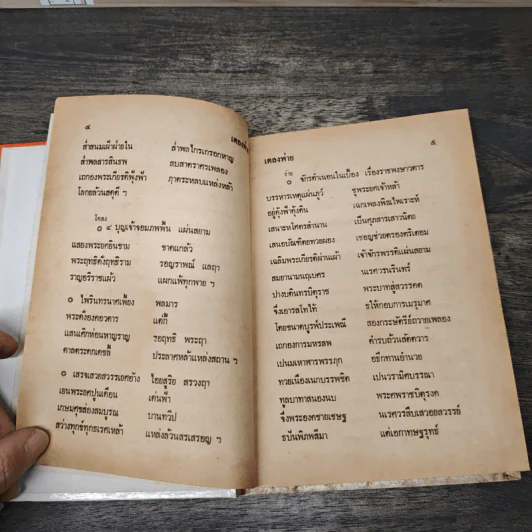 ๔
เตลงพ่าย
ล้ำพลไกรเกรอกหาญ
ล้ำพลสารสินธพ สบสาตราศรเพลอง
เถกองพระเกียรติฟุ้งฟ้า ภาคระหลบแหล่งหล้า
โลกล้วนสดุดี ฯ
โคลง
๏ ๔ บุญเจ้าจอมภพพื้น แผ่นสยาม
แสยงพระยศยินขาม ขาดแกล้ว
พระฤทธิดั่งฤทธิราม รอญราพณ์ แลฤๅ
ราญอริราชแผ้ว แผกแพ้ทุกพาย ฯ
๏ ไพรินทรนาศเพี้ยง พลมาร
พระดั่งองคอวตาร แต่กี้
แสนเศิกห่อนหาญราญ รอฤทธิ พระฤๅ
ดาลตระดกเดชลี้ ประลาตหล้าแหล่งสถาน ฯ
๏ เสร็จเสวยสวรรเยศอ้าง ไอยสูริย สรวงฤๅ
เย็นพระยศปูนเดือน เด่นฟ้า
เกษมศุขส่องสมบูรณ บานทวีป
สว่างทุกข์ทุกธเรศหล้า แหล่งล้วนสรเสรอญ ฯ
เตลงพ่าย
๕
ร่าย
๏ จักรดำเนอนในเบื้อง เรื่องราชพงษาวดาร
บรรหารเหตุแผ่นภูว์ ชูพระยศเจ้าหล้า
อยู่คุ้งฟ้าคุ้งดิน เฉกเพลงพิณไพเราะห์
เสนาะห์โศตรสำนาน เป็นศุภสารเสาวนิต
เสนอบัณฑิตยทวยผอง เชอญช่วยตรองตริเตอม
เฉลิมพระเกียรติผ่านเผ้า เจ้าจักรพรรดิแผ่นสยาม
สมยานามนฤเบศร นเรศวรนรินทร์
ปางบดินทรบิตุราช พระบาทสู่สวรรคต
จึ่งเอารสไทไท้ ธให้กอบการเมรุมาศ
โดยขนาดบูรพ์ประเพณี สองกระษัตรีย์ถวายเพลอง
เถกองการมหรสพ คำรบถ้วนสัตตวาร
เปนมหาทานบริจาค
ทวยเนืองแนกบรรพชิต เปนวรามิศบรรณา
ทูลบาทาสนองนบ พระศพราชบิตุรงค
จึ่งพระองคชายเชษฐ นเรศวรสืบเสวอยสวรรย์
ธปันพิภพลีมา แด่เอกาทษฐรุทธ์